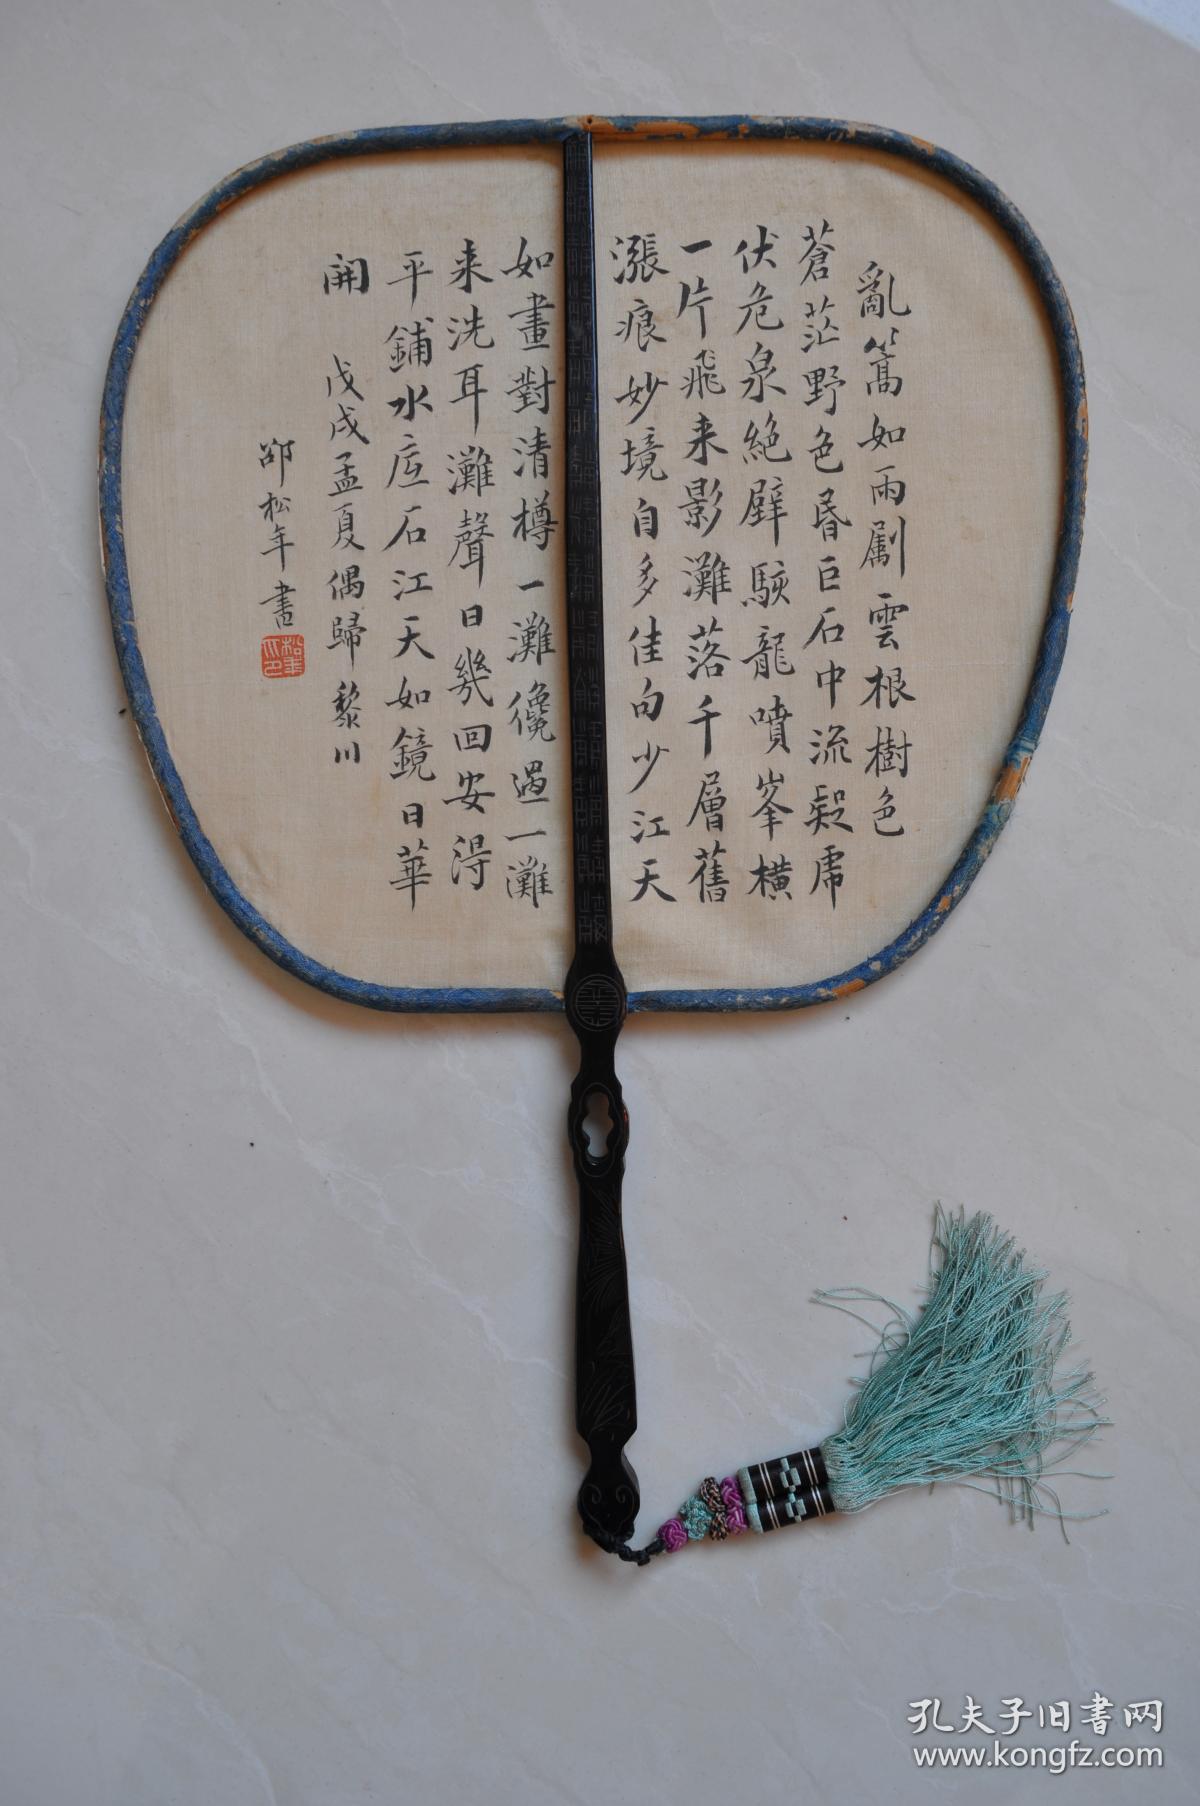 亂篙如雨劚雲根樹色
蒼茫野色昏巨石中流疑虎
伏危泉絶壁駭龍噴峯橫
一片飛来影灘落千層舊
漲痕妙境自多佳句少江天
如畫對清樽一灘纔過一灘
来洗耳灘聲日幾回安得
平鋪水底石江天如鏡日華
開 戊戌孟夏偶歸黎川
邵松年書
孔夫子旧書网
www.kongfz.com